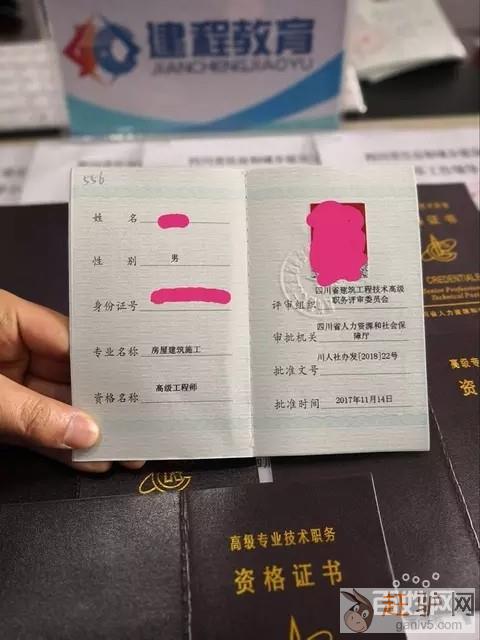 建程教育
JIANCHENGJIAOYU
556
姓 名
性 别 男
身份证号
专业名称 房屋建筑施工
资格名称 高级工程师
评审组织 四川省建筑工程技术高级
职务评审委员会
审批机关 四川省人力资源和社会保
障厅
批准文号 川人社办发[2018]22号
批准时间 2017年11月14日
证书
CREDENTIALS
高级专业技术职务
资格证书
高级专业
资格
赶驴网
ganlv5.com